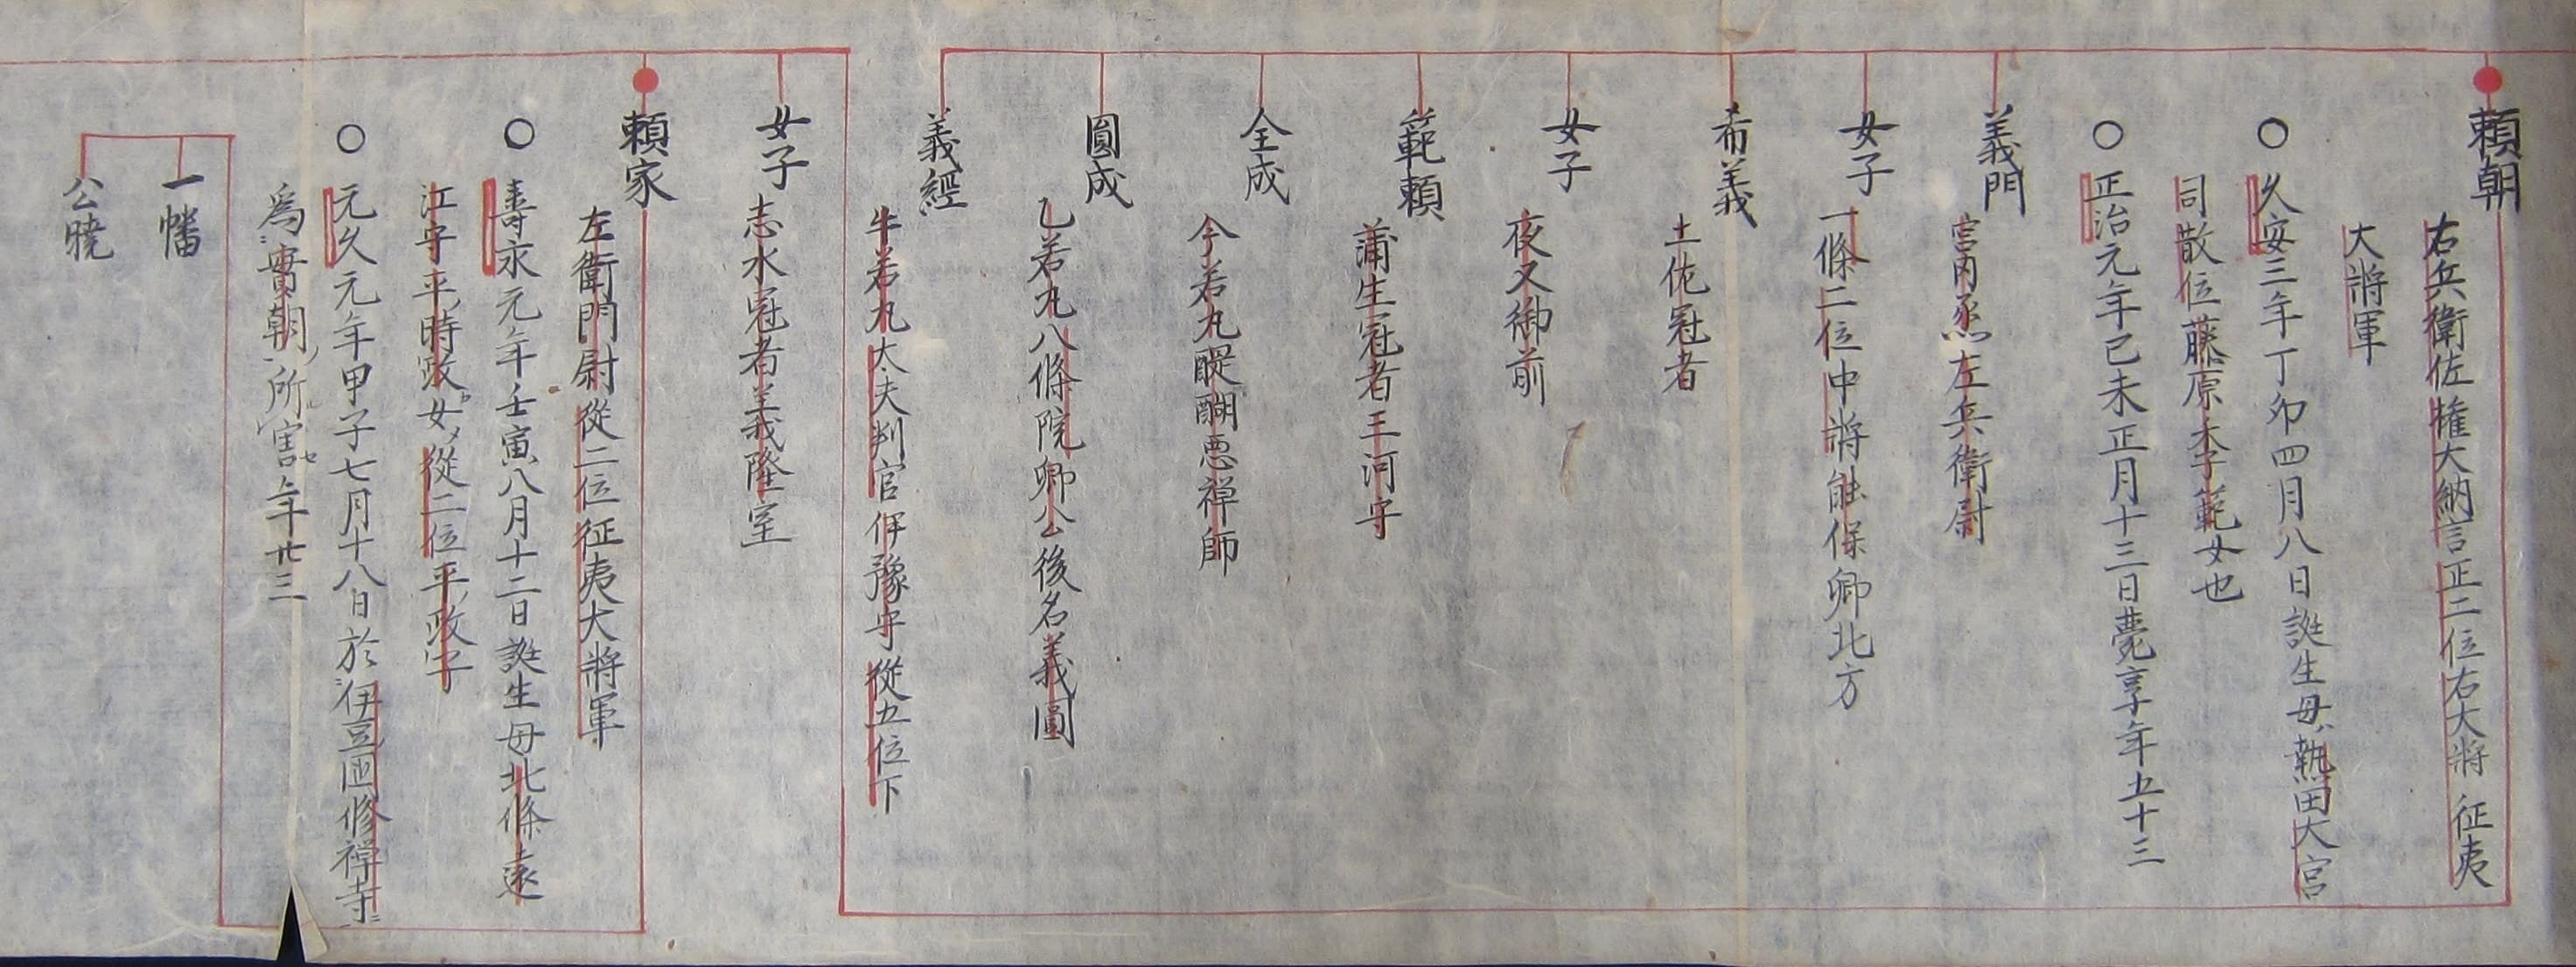 頼朝
右兵衛佐権大納言正二位右大將 征夷
大將軍
○ 久安三年丁卯四月八日誕生母熱田大宮
司散位藤原季範女也
○ 正治元年己未正月十三日薨享年五十三
義門
宮内丞左兵衛尉
女子
一條二位中將能保卿北方
希義
土佐冠者
女子
夜叉御前
範頼
蒲生冠者三河守
全成
今若丸醍醐悪禅師
圓成
乙若丸八條院卿公後名義圓
義經
牛若丸太夫判官伊豫守從五位下
女子
志水冠者義隆室
頼家
左衛門尉從二位征夷大將軍
○ 壽永元年壬寅八月十二日誕生母北條遠
江守平時政女從二位平政子
○ 元久元年甲子七月十八日於伊豆国修禅寺
為實朝所害年廿三
一幡
公暁